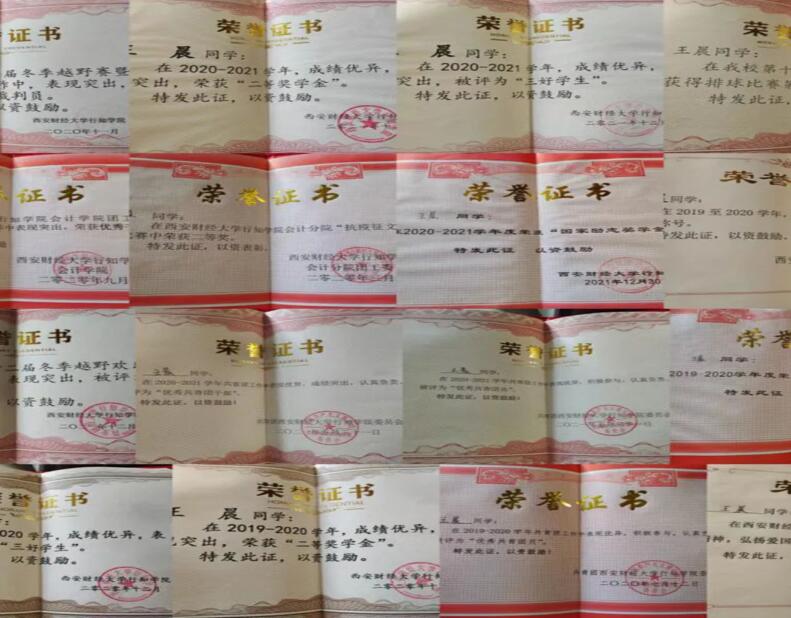 证书
届冬季越野赛暨
作中，表现突出，
裁判员。
资鼓励。
西安财经大学行知学院
二〇二〇年十一月
荣誉证书
王 晨 同学：
在 2020-2021 学年，成绩优异，
突出，荣获“二等奖学金”。
特发此证，以资鼓励。
西安财经大学行知学院
荣誉证书
晨 同学：
在 2020-2021 学年，成绩优异，
突出，被评为“三好学生”。
特发此证，以资鼓励。
西安财经大学行知
二〇二一年十二月
荣
王晨同学：
在我校第十
获得排球比赛
特发此证，以
证书
行知学院会计学院团工
中表现突出，荣获优秀
西安财经大学行知
会计学院
二〇二〇年九月
荣誉证书
同学：
在西安财经大学行知学院会计分院“抗疫征文
比赛中荣获二等奖。
特发此证，以资表彰。
西安财经大学行知学院
会计分院团工委
荣誉证书
王晨 同学：
2020-2021学年度荣获“国家励志奖学金
特发此证 以资鼓励
西安财经大学行知
2021年12月30
荣誉
同学：
在 2019 至 2020 学年，
称号。
特发此证，以资鼓励。
西安财经大
二〇二〇
誉证书
二届冬季越野欢
表现突出，被评
以资鼓励。
西安财经大学行知学院
二〇二〇年十二月
荣誉证书
王晨 同学：
在 2020-2021 学年共青团工作中表现优异，成绩突出，认真负责，
评为“优秀共青团干部”。
特发此证，以资鼓励！
共青团西安财经大学行知学院委员会
荣誉证书
王晨 同学：
在 2020-2021 学年共青团工作中表现优异，积极参与，认真负责，
被评为“优秀共青团员”。
特发此证，以资鼓励！
共青团西安财经大学行知学院委员会
荣誉
同学：
2019-2020学年度荣
特发此证
西安财经大
荣誉证书
成绩优异，表
“三好学生”。
以资鼓励。
西安财经大学行知学院
二〇二〇年十二月
荣誉证书
王 晨 同学：
在 2019-2020 学年，成绩优异，
现突出，荣获“二等奖学金”。
特发此证，以资鼓励。
西安财经大学行知学院
二〇二〇年十二月
荣誉证书
王晨 同学：
在 2019-2020 学年共青团工作中表现优异，积极参与，认真
评为“优秀共青团员”。
特发此证，以资鼓励！
共青团西安财经大学行知学院委
二〇二〇年六月十二日
荣
王晨 同学：
在西安财经
精神，弘扬爱国
特发此证，